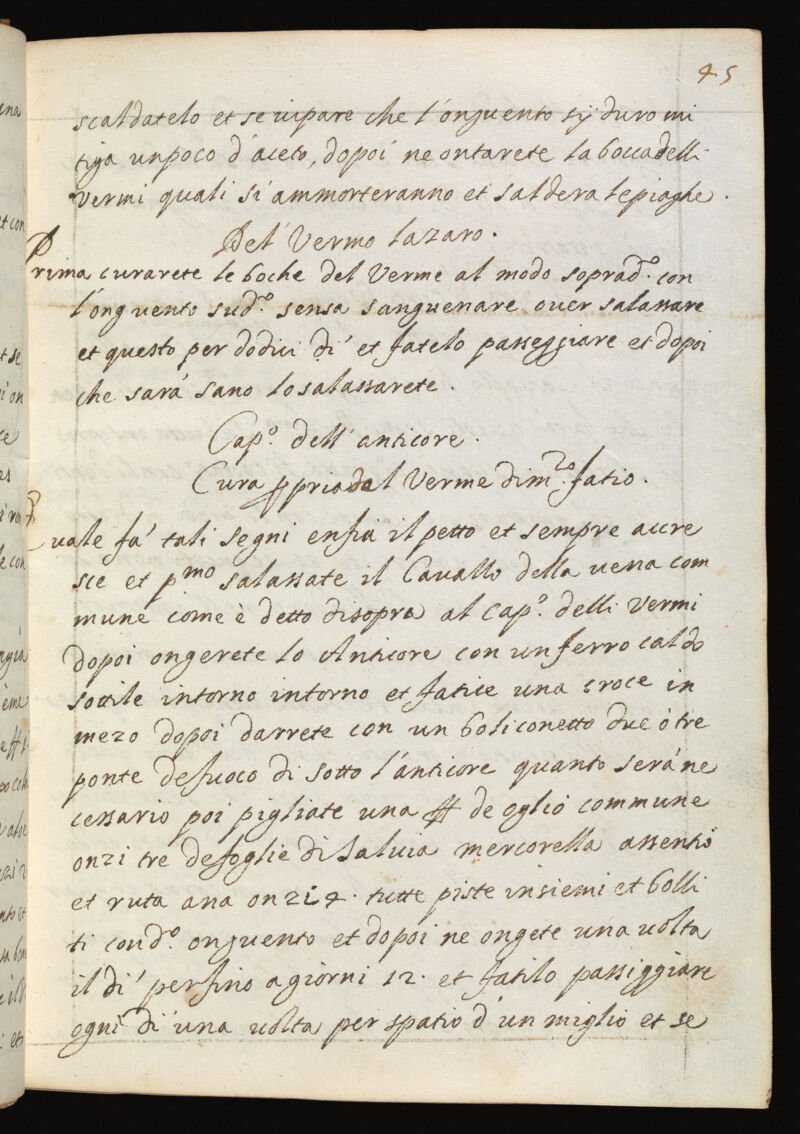 45
scaldatelo et se vi pare che l'onguento sij duro mi
tiga un poco d'aceto, dopoi ne ontarete la bocca delli
Vermi quali si ammorteranno et saldera le piaghe.
Del Vermo lazaro.
Prima curarete le boche del Verme al modo soprad.º con
l'onguento sud.º sensa sanguenare over salassare
et questo per dodici dì et fatelo passeggiare et dopoi
che sará sano lo salassarete.
Cap.º dell'anticore.
Cura ppria dal Verme di m.ro fatio.
Quale fa' tali segni enfia il petto et sempre accre
sce et pmo salassate il Cavallo della vena com
mune come è detto disopra al Cap.º delli Vermi
dopoi ongerete lo Anticore con un ferro caldo
sottile intorno intorno et fatice una croce in
mezo dopoi darrete con un boliconetto due ò tre
ponte de fuoco di sotto l'anticore quanto será ne
cessario poi pigliate una ff de oglio commune
onzi tre de foglie di Salvia mercorella assentio
et ruta ana onzi 4. tutte piste insiemi et bolli
ti con d.º onguento et dopoi ne ongete una volta
il dì perfino a giorni 12. et fatilo passiggiare
ogni dì una volta per spatio d'un miglio et se